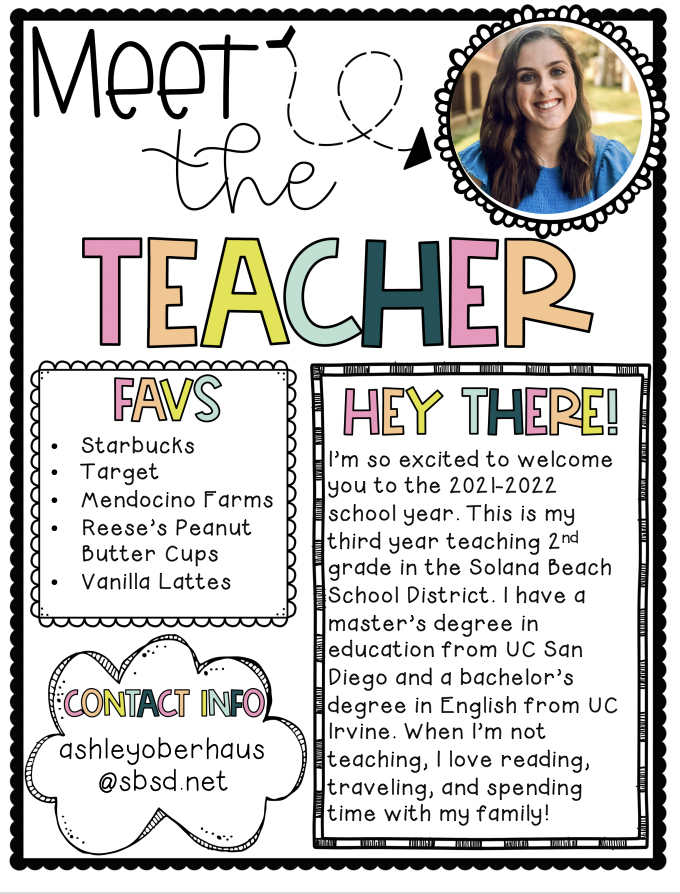 Meet
the
TEACHER
FAVS
• Starbucks
• Target
• Mendocino Farms
• Reese's Peanut
Butter Cups
• Vanilla Lattes
CONTACT INFO
ashleyoberhaus
@sbsd.net
HEY THERE!
I'm so excited to welcome
you to the 2021-2022
school year. This is my
third year teaching 2nd
grade in the Solana Beach
School District. I have a
master's degree in
education from UC San
Diego and a bachelor's
degree in English from UC
Irvine. When I'm not
teaching, I love reading,
traveling, and spending
time with my family!